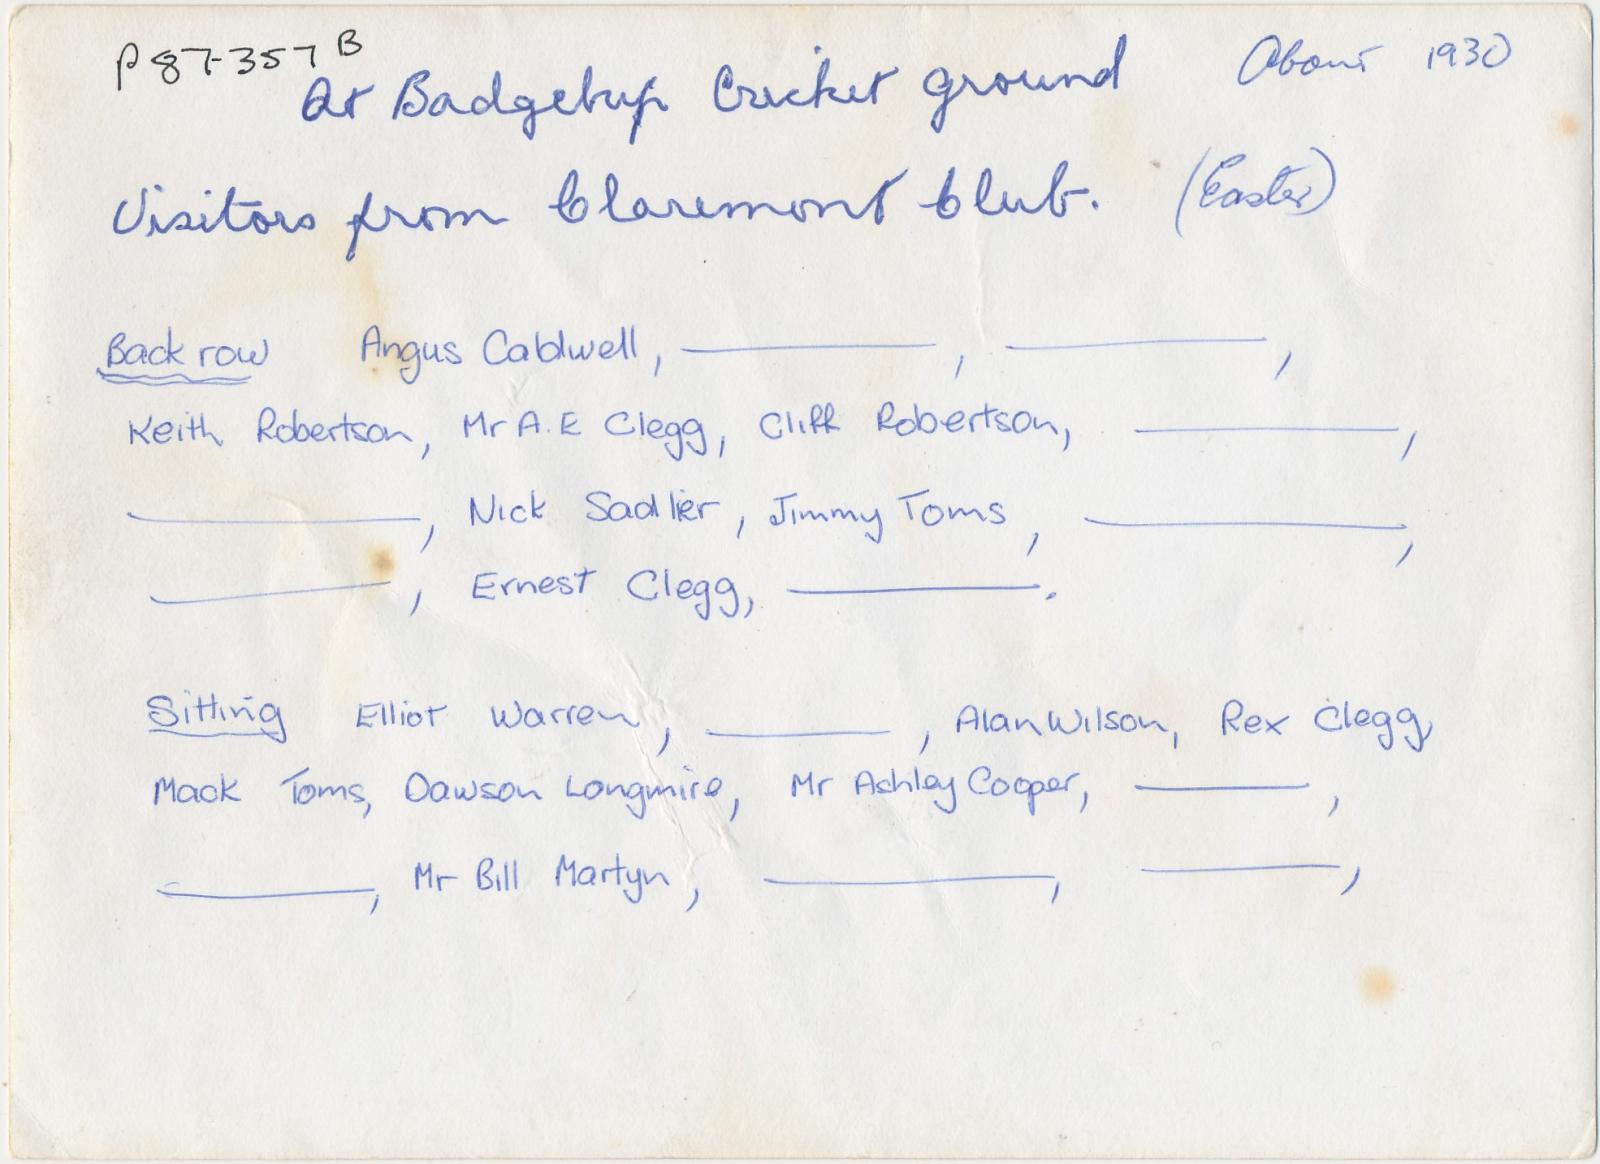 P87-357B
At Badgebup Cricket ground About 1930
Visitors from Claremont Club. (Easter)
Back row Angus Caldwell, ________, ________,
Keith Robertson, Mr A.E Clegg, Cliff Robertson, ________,
________, Nick Sadlier, Jimmy Toms, ________,
________, Ernest Clegg, ________.
Sitting Elliot Warren, ________, Alan Wilson, Rex Clegg,
Mack Toms, Dawson Longmire, Mr Ashley Cooper, ________,
________, Mr Bill Martyn, ________, ________,